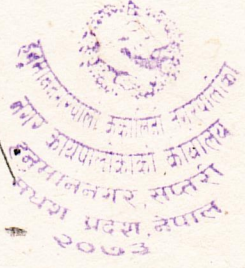 हनुमाननगर कंकालिनी नगरपालिका
नगर कार्यपालिकाको कार्यालय
हनुमाननगर, सप्तरी
मधेश प्रदेश, नेपाल
२०७३